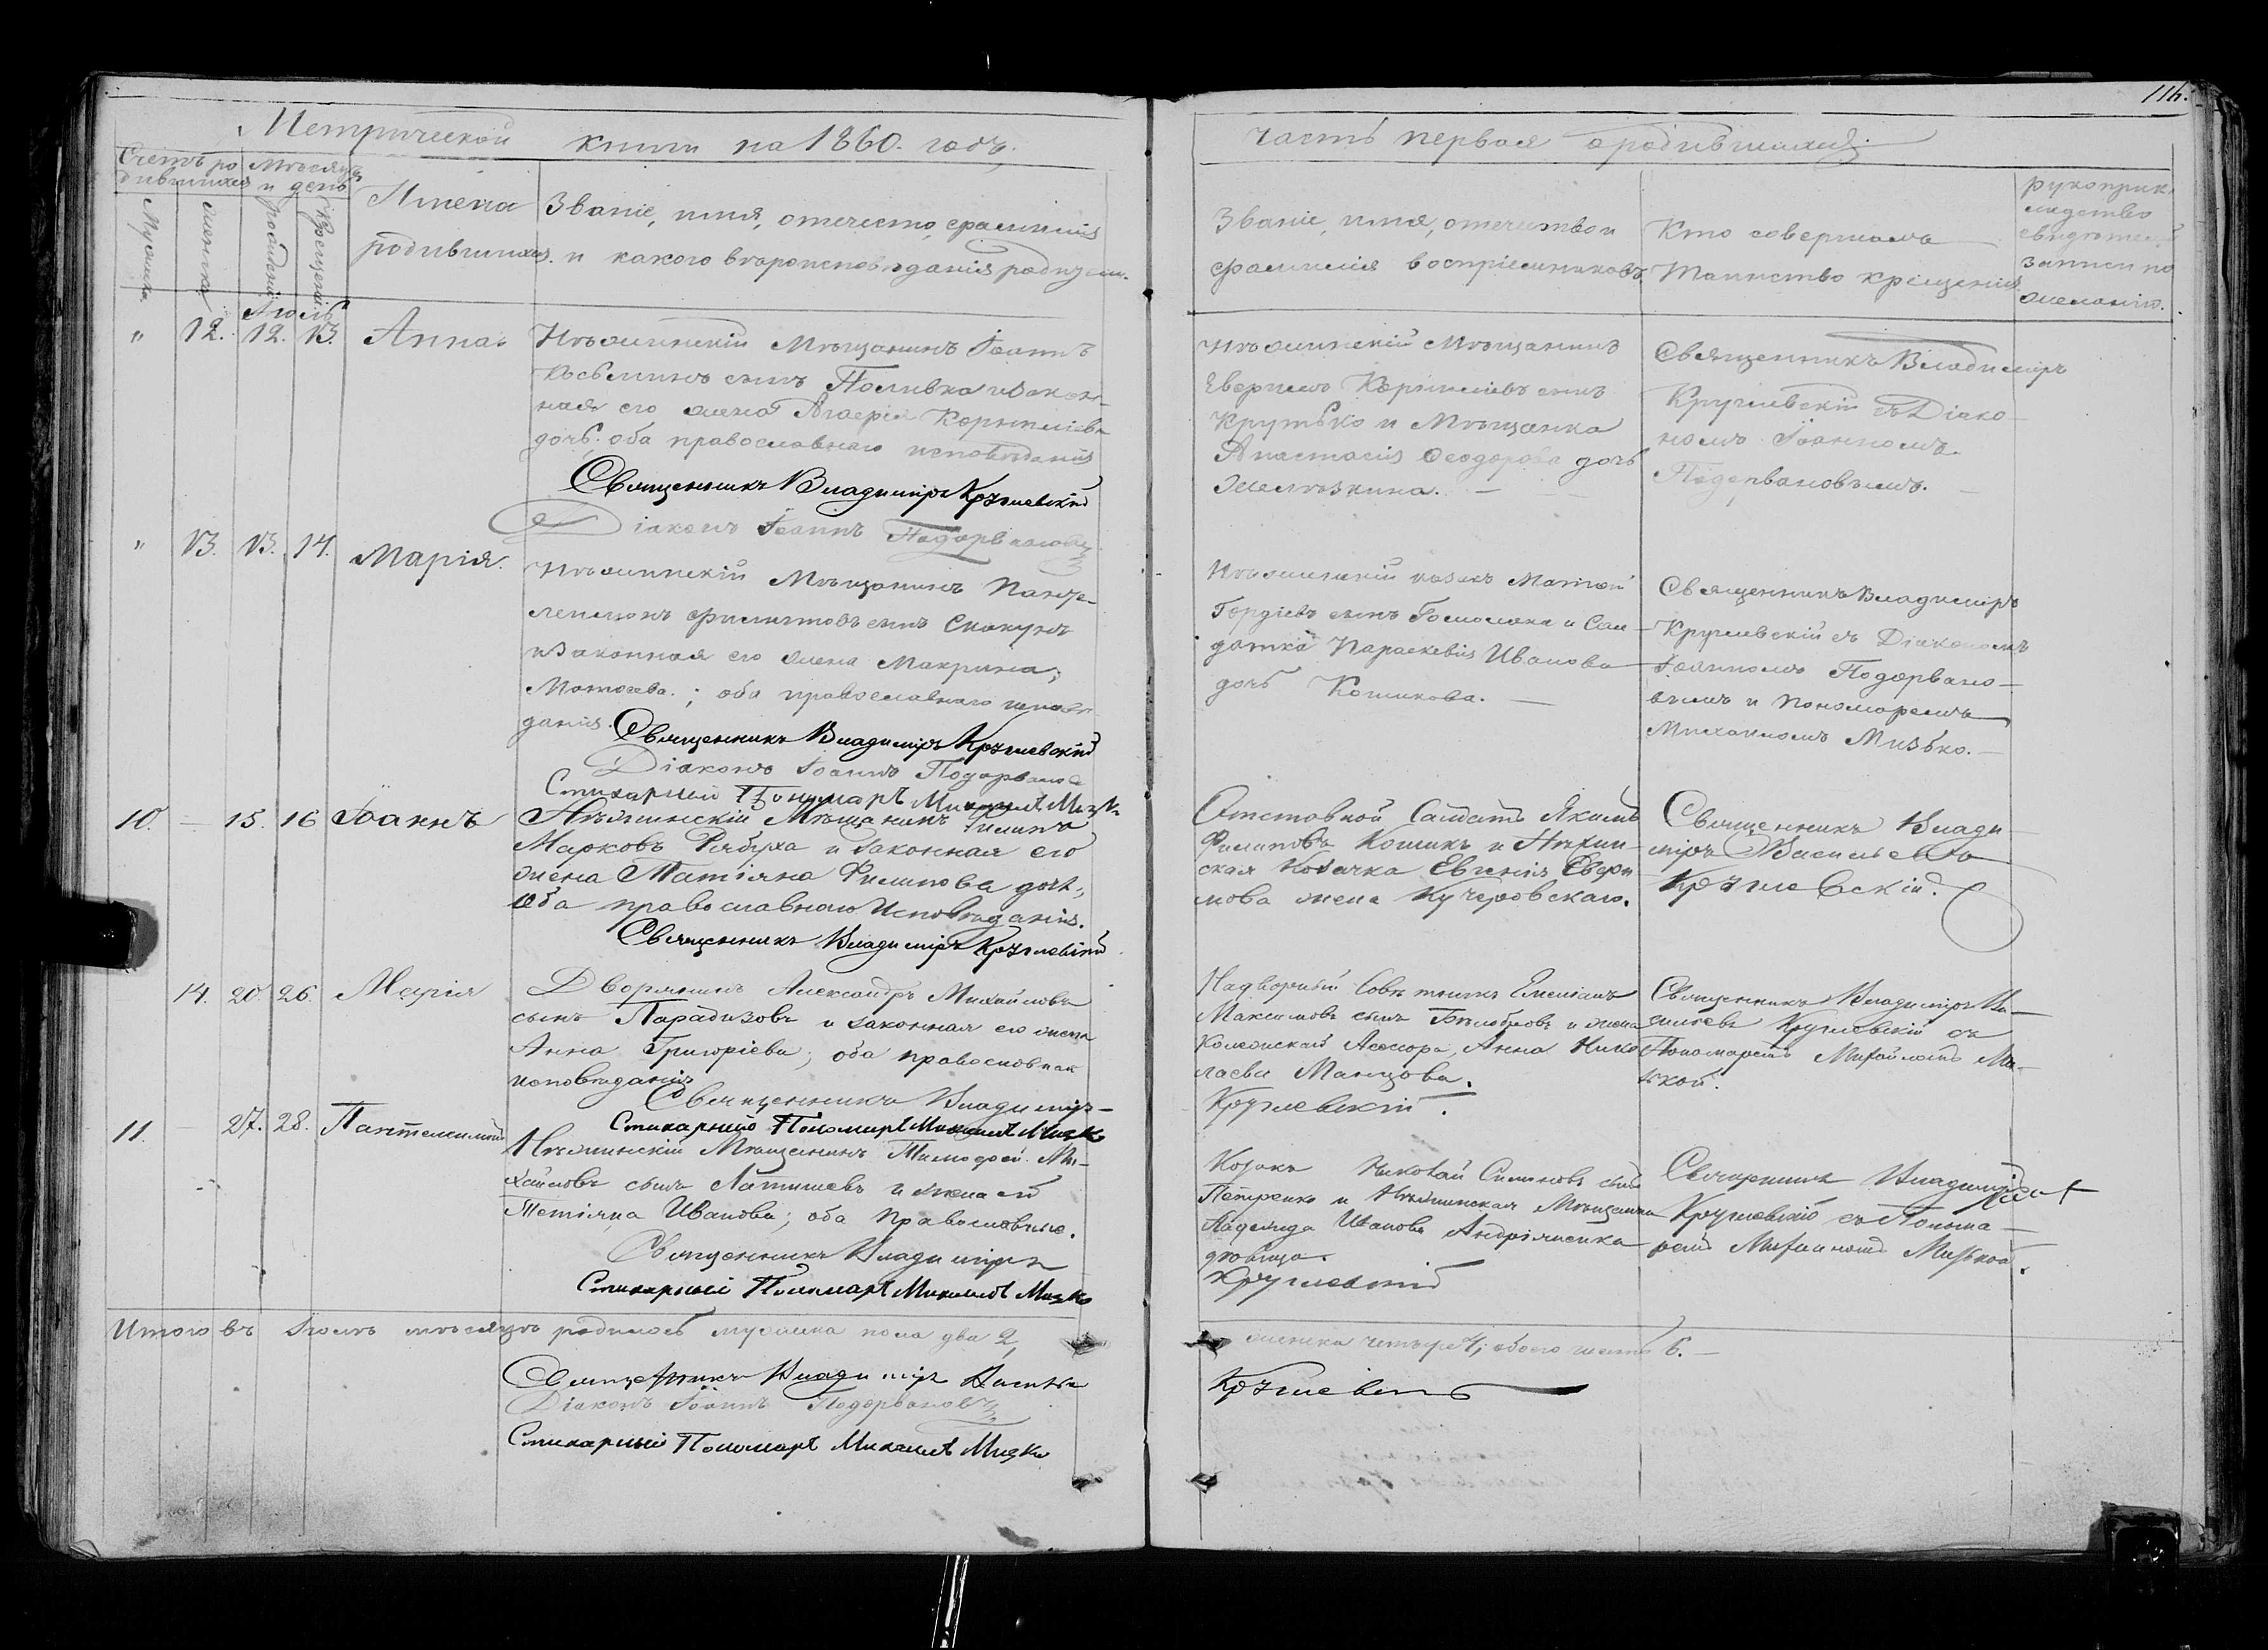 116.
Метрической книги на 1860. годъ,
часть первая о родившихся.
Счетъ ро
дившихся
Мѣсяцъ
и день
Мужеска.
Женска.
рожденія.
Крещенія.
Имена
родившихся.
Званіе, имя, отечество, фамилія
и какого вѣроисповѣданія родители.
Званіе, имя, отечество и
фамилія воспріемниковъ.
Кто совершалъ
Таинство крещенія.
рукоприк
ладство
свидѣтелей
записи по
желанію.
Іюль
" 12. 12. 13. Анна.
Нѣжинскій Мѣщанинъ Іоаннъ
Косьминъ сынъ Поливка и Закон-
ная его жена Агафія Корниліева
дочь. оба православнаго исповѣданія
Священникъ Владиміръ Круглевскій
Діаконъ Іоаннъ Подорвановъ
Нѣжинскій Мѣщанинъ
Евфимъ Корниліевъ сынъ
Крутько и Мѣщанка
Анастасія Феодорова дочь
Железкина. —
Священникъ Владиміръ
Круглевскій съ Діако-
номъ Іоанномъ
Подорвановымъ. —
" 13. 13. 14. Марія.
Нѣжинскій Мѣщанинъ Панте-
леимонъ Филиповъ сынъ Скакунъ
и Законная его жена Макрина,
Матѳеева.; оба православнаго исповѣ
данія. Священникъ Владиміръ Круглевскій
Діаконъ Іоаннъ Подорванов
Стихарный Пономарь Михаилъ Мизко
Нѣжинскій козакъ Матѳей
Гордіевъ сынъ Гомоляка и Сол-
датка Параскевія Иванова
дочь Кошикова. —
Священникъ Владиміръ
Круглевскій съ Діакономъ
Іоанномъ Подорвано-
вымъ и Пономаремъ
Михаиломъ Мизько. —
10. — 15. 16 Іоаннъ
Нѣжинскій Мѣщанинъ Филипъ
Марковъ Рябуха и законная его
жена Татіяна Филипова дочь,
Оба православнаго Исповѣданія.
Священникъ Владиміръ Круглевскій
Отставной Салдатъ Якимъ
Филиповъ Кошикъ и Нѣжин-
ская Козачка Евгенія Евфи
мова жена Кучеровскаго.
Священникъ Влади-
міръ Васильевъ
Круглевскій.
14. 20. 26. Марія
Дворянинъ Александръ Михайловъ
сынъ Парадизовъ и законная его жена
Анна Григоріева; оба православнаго
исповѣданія
Священникъ Владиміръ-
Стихарный Пономарь Михаилъ Мизко
Надворный Совѣтникъ Емеліанъ
Максимовъ сынъ Бѣлобровъ и жена
Колежскаго Асесора, Анна Нико
лаева Манцова.
Круглевскій.
Священникъ Владиміръ Ва-
сильевъ Круглевскій съ
Пономаремъ Михайломъ Ми-
зькой.
11. — 27. 28. Пантелеимонъ
Нѣжинскій Мѣщанинъ Тимофей Ми-
хайловъ сынъ Латишевъ и жена его
Тетіяна Иванова; оба православные.
Священникъ Владиміръ
Стихарный Пономарь Михаилъ Мизко
Козакъ Николай Симоновъ сынъ
Петренко и Нѣжинская Мѣщанка
Надежда Иванова Андріяшенка
дѣвица.
Круглевскій
Священникъ Владиміръ
Круглевскій съ Понома-
ремъ Михайломъ Мизькой.
Итого въ Іюлѣ мѣсяцѣ родилось мужеска пола два 2,
женска четыре 4, обоего шесть 6. —
Священникъ Владиміръ Васильевъ
Круглевскій
Діаконъ Іоаннъ Подорвановъ
Стихарный Пономарь Михаилъ Мизко